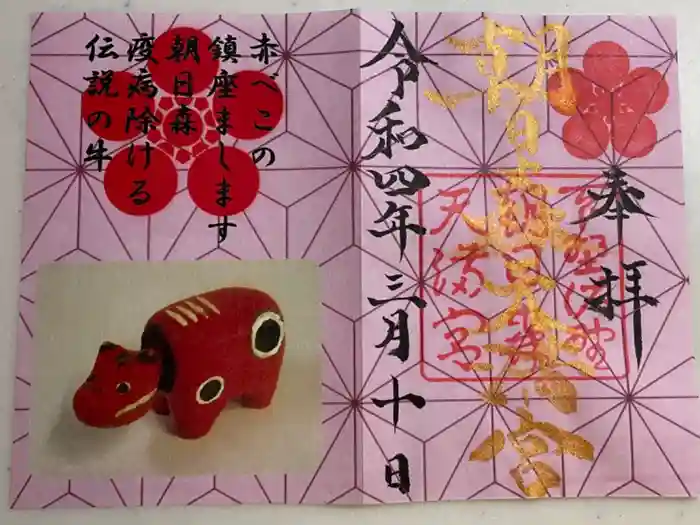 奉拝
朝日森天満宮
下野佐野
朝日森
天満宮
令和四年三月十日
赤べこの
鎮座まします
朝日森
疫病除ける
伝説の牛